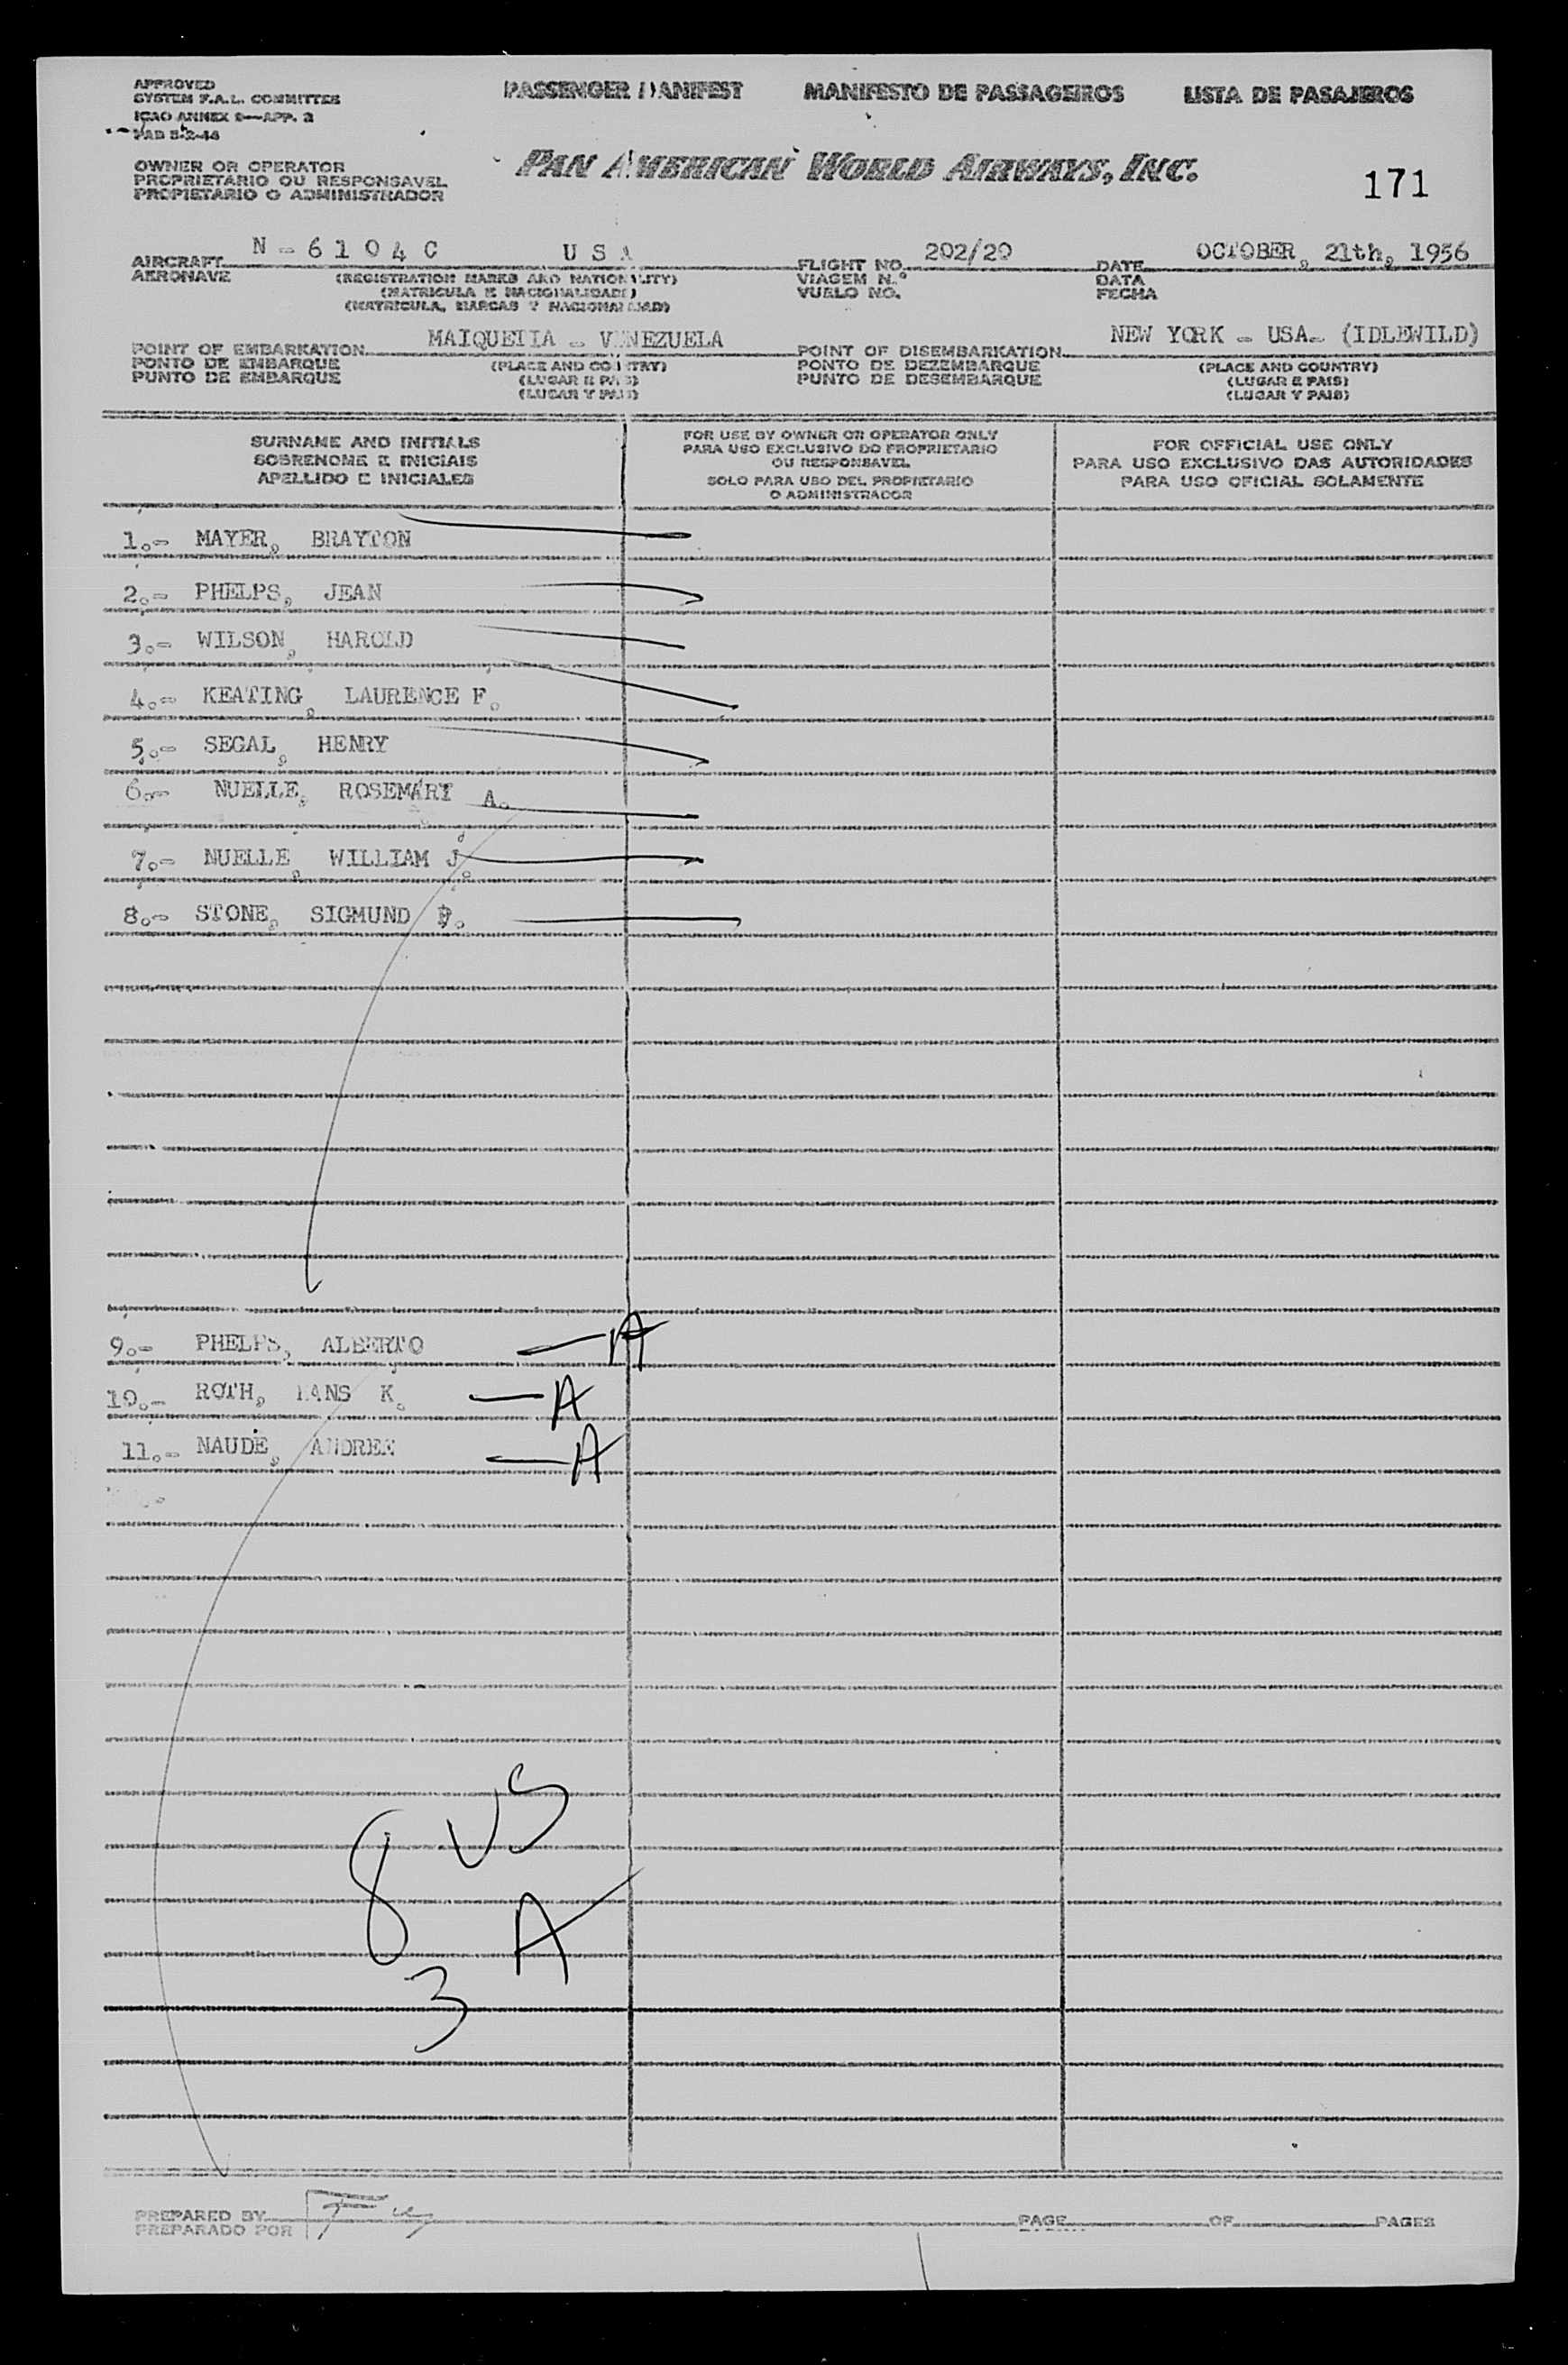 APPROVED
SYSTEM F.A.L. COMMITTEE
ICAO ANNEX 9—APP. 3
PAD 5-2-44
PASSENGER MANIFEST MANIFESTO DE PASSAGEIROS LISTA DE PASAJEROS
OWNER OR OPERATOR
PROPRIETARIO OU RESPONSAVEL
PROPIETARIO O ADMINISTRADOR
PAN AMERICAN WORLD AIRWAYS, INC.
171
AIRCRAFT N - 6 1 0 4 C U S A FLIGHT NO. 202/20 DATE OCTOBER, 21th, 1956
AERONAVE (REGISTRATION MARKS AND NATIONALITY) VIAGEM N.º DATA
(MATRICULA E NACIONALIDADE) VUELO NO. FECHA
(MATRICULA, MARCAS Y NACIONALIDAD)
POINT OF EMBARKATION MAIQUETIA - VENEZUELA POINT OF DISEMBARKATION NEW YORK - USA- (IDLEWILD)
PONTO DE EMBARQUE (PLACE AND COUNTRY) PONTO DE DEZEMBARQUE (PLACE AND COUNTRY)
PUNTO DE EMBARQUE (LUGAR E PAIS) PUNTO DE DESEMBARQUE (LUGAR E PAIS)
(LUGAR Y PAIS) (LUGAR Y PAIS)
SURNAME AND INITIALS
SOBRENOME E INICIAIS
APELLIDO E INICIALES
FOR USE BY OWNER OR OPERATOR ONLY
PARA USO EXCLUSIVO DO PROPRIETARIO
OU RESPONSAVEL
SOLO PARA USO DEL PROPIETARIO
O ADMINISTRADOR
FOR OFFICIAL USE ONLY
PARA USO EXCLUSIVO DAS AUTORIDADES
PARA USO OFICIAL SOLAMENTE
1.- MAYER, BRAYTON
2.- PHELPS, JEAN
3.- WILSON, HAROLD
4.- KEATING, LAURENCE F.
5.- SEGAL, HENRY
6.- NUELLE, ROSEMARY A.
7.- NUELLE, WILLIAM J.
8.- STONE, SIGMUND
9.- PHELPS, ALBERTO — A
10.- ROTH, HANS K. — A
11.- NAUDE, ANDREE — A
8 US
3 A
PREPARED BY PAGE OF PAGES
PREPARADO POR